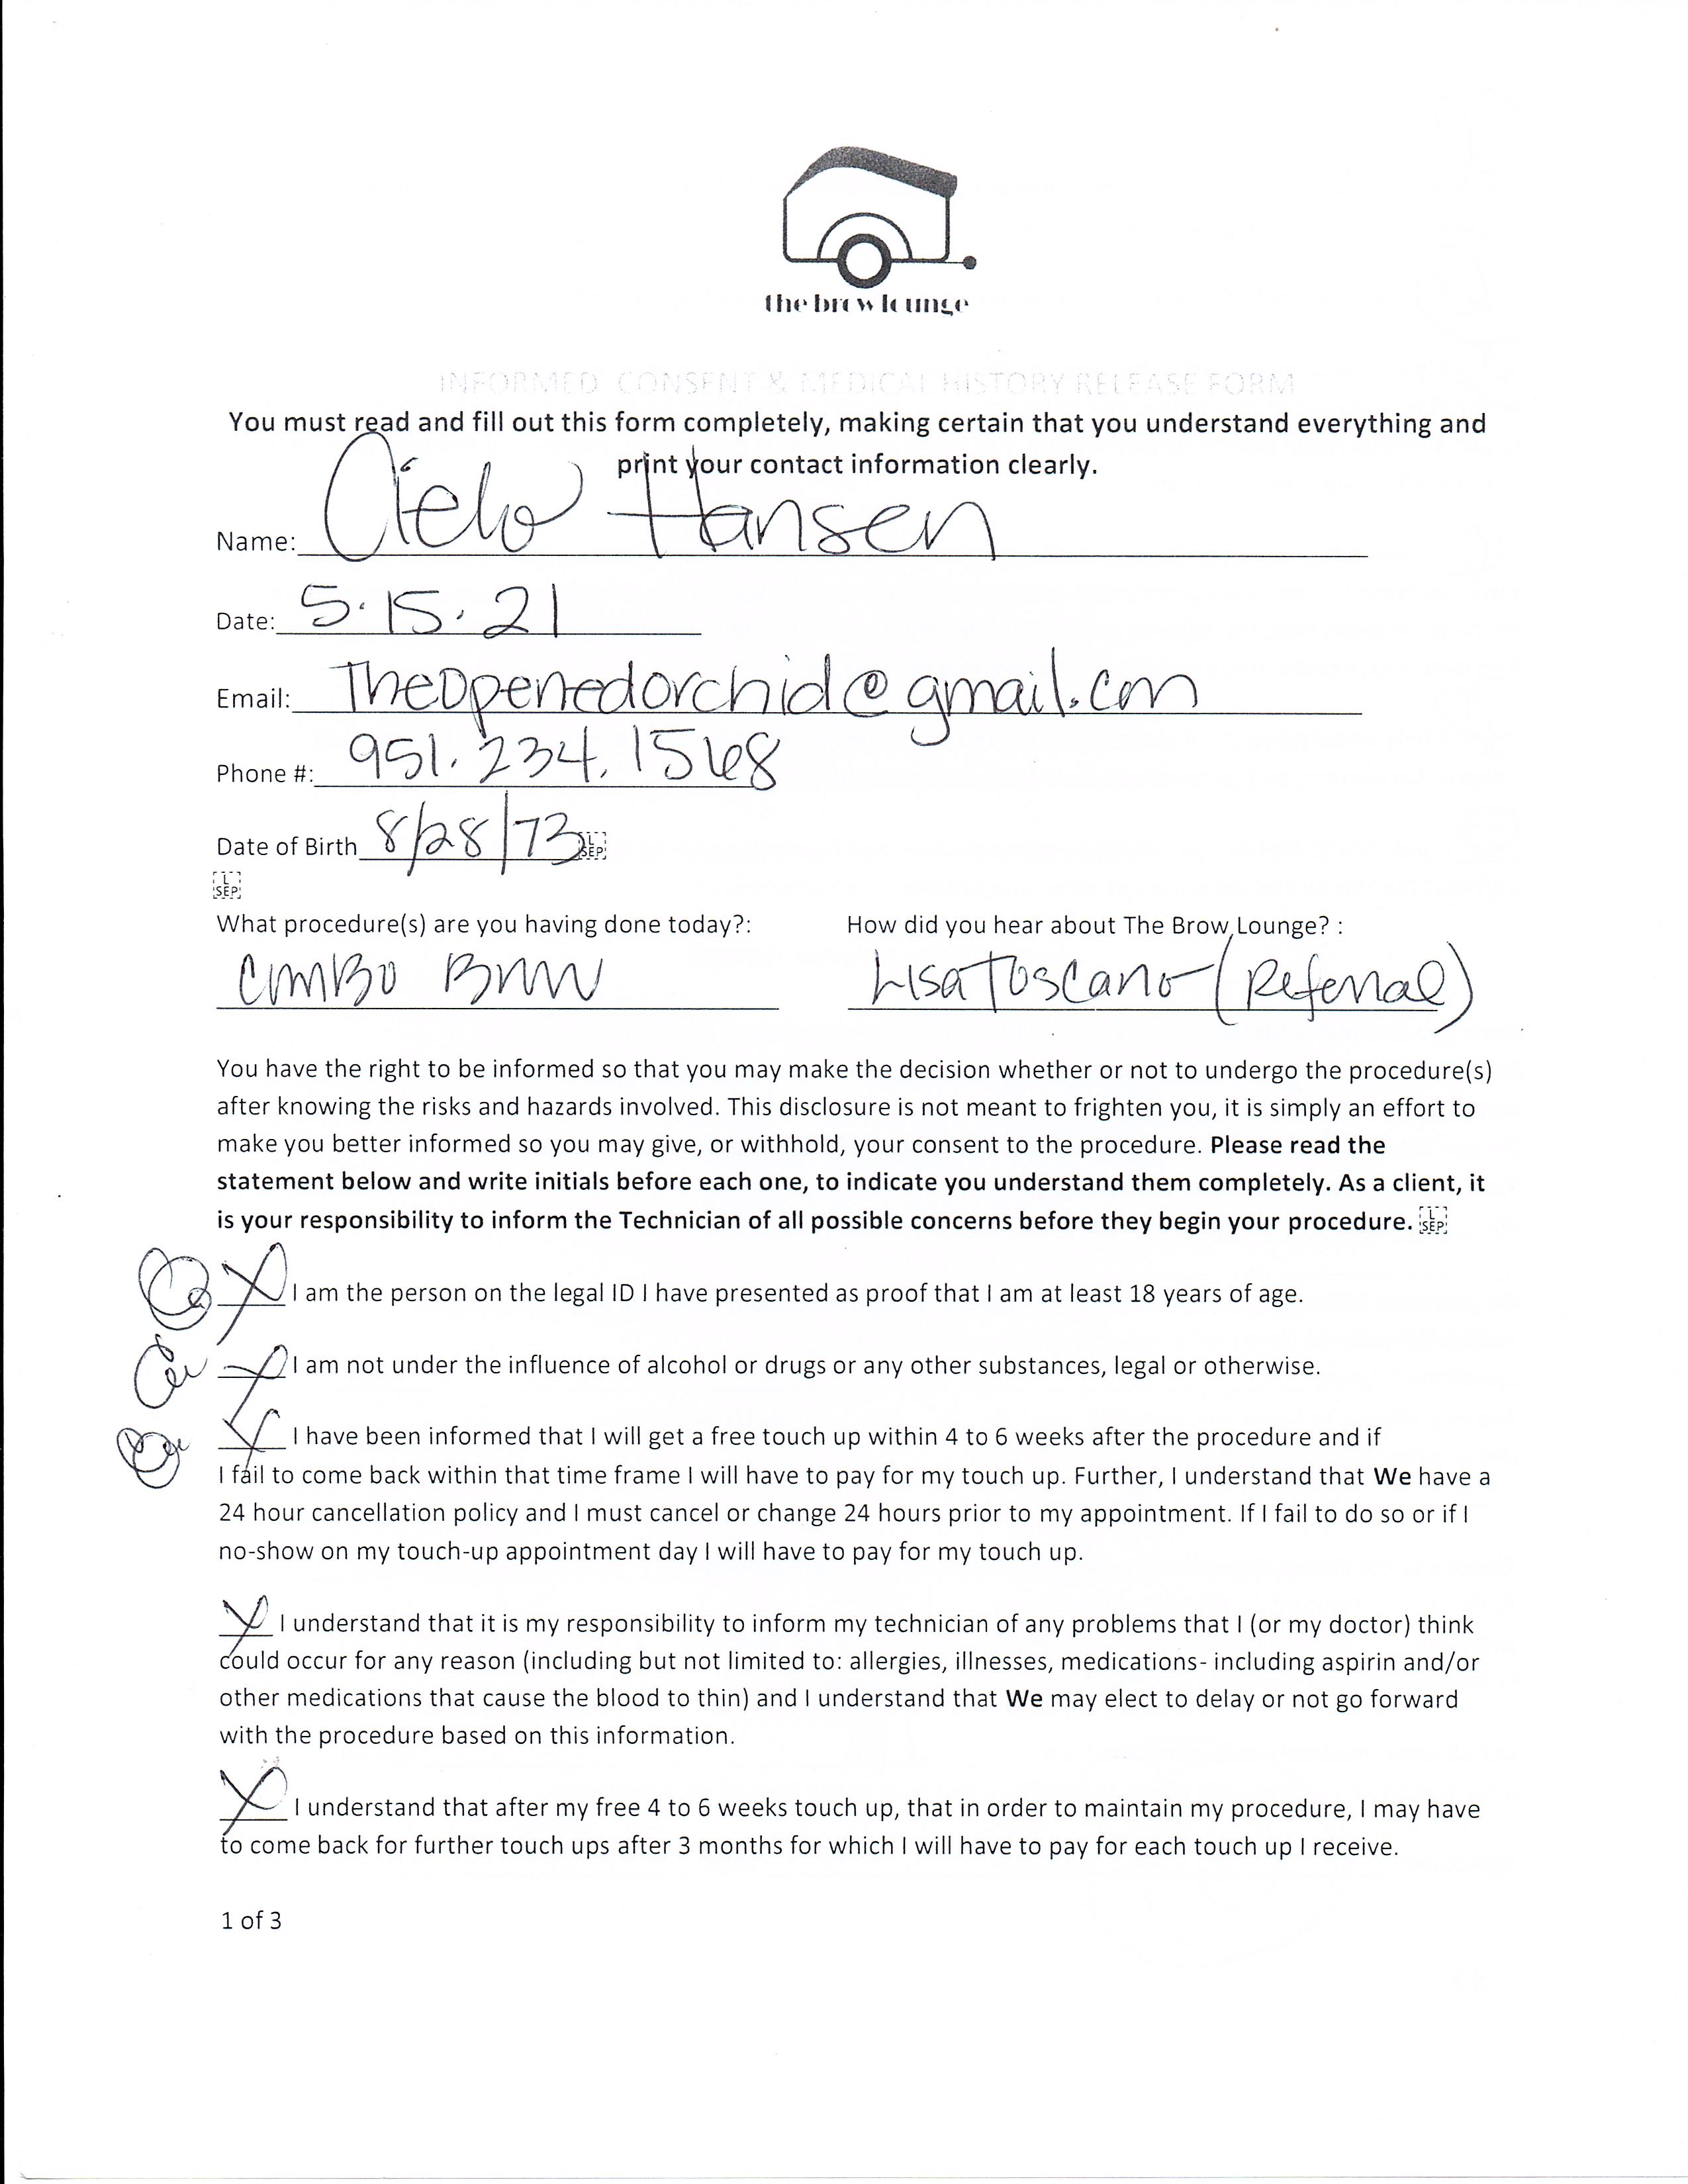 the brow lounge
INFORMED CONSENT & MEDICAL HISTORY RELEASE FORM
You must read and fill out this form completely, making certain that you understand everything and
print your contact information clearly.
Name: Cielo Hansen
Date: 5.15.21
Email: Theopenedorchid@gmail.com
Phone #: 951.234.1568
Date of Birth 8/28/73 L SEP
L SEP
What procedure(s) are you having done today?: How did you hear about The Brow Lounge? :
Combo Brow Lisa Toscano (Referral)
You have the right to be informed so that you may make the decision whether or not to undergo the procedure(s)
after knowing the risks and hazards involved. This disclosure is not meant to frighten you, it is simply an effort to
make you better informed so you may give, or withhold, your consent to the procedure. Please read the
statement below and write initials before each one, to indicate you understand them completely. As a client, it
is your responsibility to inform the Technician of all possible concerns before they begin your procedure. L SEP
X I am the person on the legal ID I have presented as proof that I am at least 18 years of age.
X I am not under the influence of alcohol or drugs or any other substances, legal or otherwise.
X I have been informed that I will get a free touch up within 4 to 6 weeks after the procedure and if
I fail to come back within that time frame I will have to pay for my touch up. Further, I understand that We have a
24 hour cancellation policy and I must cancel or change 24 hours prior to my appointment. If I fail to do so or if I
no-show on my touch-up appointment day I will have to pay for my touch up.
X I understand that it is my responsibility to inform my technician of any problems that I (or my doctor) think
could occur for any reason (including but not limited to: allergies, illnesses, medications- including aspirin and/or
other medications that cause the blood to thin) and I understand that We may elect to delay or not go forward
with the procedure based on this information.
X I understand that after my free 4 to 6 weeks touch up, that in order to maintain my procedure, I may have
to come back for further touch ups after 3 months for which I will have to pay for each touch up I receive.
1 of 3